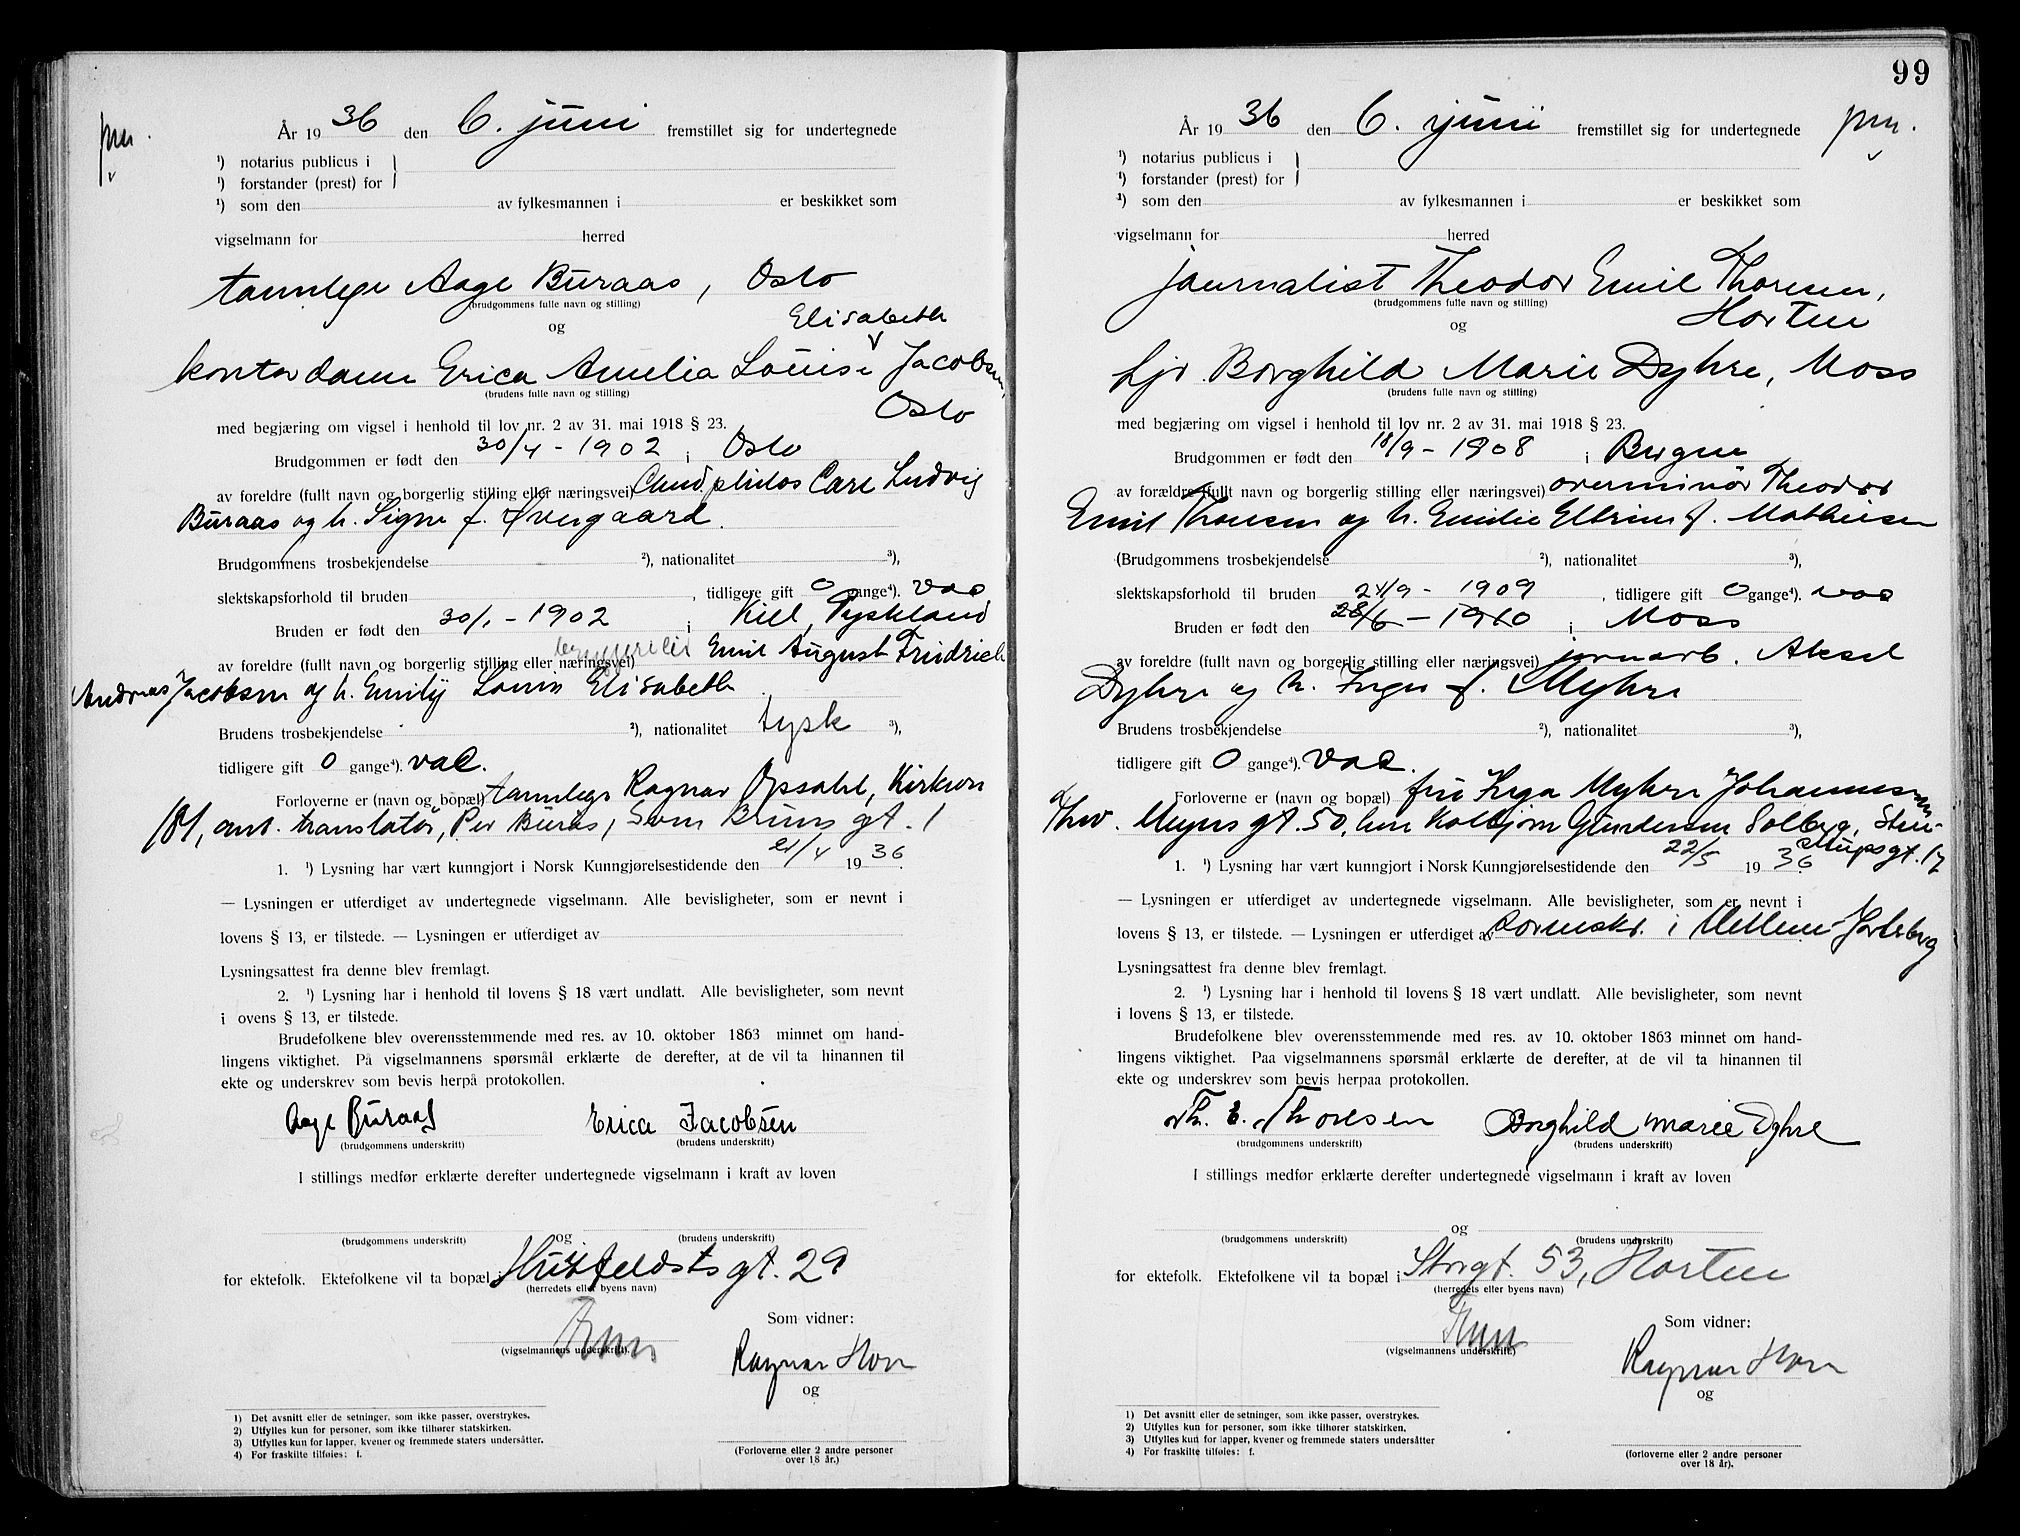 pm.
År 1936 den 6. juni fremstillet sig for undertegnede
¹) notarius publicus i
¹) forstander (prest) for
¹) som den av fylkesmannen i er beskikket som
vigselmann for herred
tannlege Aage Buraas, Oslo
(brudgommens fulle navn og stilling)
og Elisabeth
kontordame Erica Amelia Louise Jacobsen,
(brudens fulle navn og stilling)
Oslo
med begjæring om vigsel i henhold til lov nr. 2 av 31. mai 1918 § 23.
Brudgommen er født den 30/4 - 1902 i Oslo
av foreldre (fullt navn og borgerlig stilling eller næringsvei) Cand philos Carl Ludvig
Buraas og h. Signe f. Øvergaard.
Brudgommens trosbekjendelse ²), nationalitet ³),
slektskapsforhold til bruden , tidligere gift 0 gange⁴). vac
Bruden er født den 30/1 - 1902 i Kiel, Tyskland
av foreldre (fullt navn og borgerlig stilling eller næringsvei) Emil August Friedrich
Andreas Jacobsen og h. Emily Louise Elisabeth
Brudens trosbekjendelse ²), nationalitet tysk ³),
tidligere gift 0 gange⁴). vac.
Forloverne er (navn og bopæl) tannlege Ragnar Opsahl, Kirkevn
101, aut. translatør, Per Buraas, Sven Bruns gt. 1
1. ¹) Lysning har vært kunngjort i Norsk Kunngjørelsestidende den 21/4 1936.
— Lysningen er utferdiget av undertegnede vigselmann. Alle bevisligheter, som er nevnt i
lovens § 13, er tilstede. — Lysningen er utferdiget av
Lysningsattest fra denne blev fremlagt.
2. ¹) Lysning har i henhold til lovens § 18 vært undlatt. Alle bevisligheter, som nevnt
i ovens § 13, er tilstede.
Brudefolkene blev overensstemmende med res. av 10. oktober 1863 minnet om hand-
lingens viktighet. På vigselmannens spørsmål erklærte de derefter, at de vil ta hinannen til
ekte og underskrev som bevis herpå protokollen.
Aage Buraas Erica Jacobsen
(brudgommens underskrift) (brudens underskrift)
I stillings medfør erklærte derefter undertegnede vigselmann i kraft av loven
og
(brudgommens underskrift) (brudens underskrift)
for ektefolk. Ektefolkene vil ta bopæl i Huitfeldts gt. 29
(herredets eller byens navn)
Som vidner:
(vigselmannens underskrift).
Ragnar Horn
og
1) Det avsnitt eller de setninger, som ikke passer, overstrykes.
2) Utfylles kun for personer, som ikke tilhører statskirken.
3) Utfylles kun for lapper, kvener og fremmede staters undersåtter.
4) For fraskilte tilføies: f.
(Forloverne eller 2 andre personer
over 18 år.)
99
pm.
År 1936 den 6. juni fremstillet sig for undertegnede
¹) notarius publicus i
¹) forstander (prest) for
¹) som den av fylkesmannen i er beskikket som
vigselmann for herred
journalist Theodor Emil Thoresen,
(brudgommens fulle navn og stilling)
og Horten
frk. Borghild Marie Dyhre, Moss
(brudens fulle navn og stilling)
med begjæring om vigsel i henhold til lov nr. 2 av 31. mai 1918 § 23.
Brudgommen er født den 18/9 - 1908 i Bergen
av forældre (fullt navn og borgerlig stilling eller næringsvei) overminør Theodor
Emil Thoresen og h. Emilie Eltrine f. Mathisen
(Brudgommens trosbekjendelse ²), nationalitet ³),
slektskapsforhold til bruden 24/9 - 1909 , tidligere gift 0 gange⁴). vac
Bruden er født den 28/6 - 1910 i Moss
av foreldre (fullt navn og borgerlig stilling eller næringsvei) jernarb. Aksel
Dyhre og h. Inga f. Myhre
Brudens trosbekjendelse ²), nationalitet ³),
tidligere gift 0 gange⁴). vac.
Forloverne er (navn og bopæl) fru Inga Myhre Johannessen
Thv. Meyers gt. 50, herr Kolbjørn Gundersen Solberg, Steen-
strupsgt. 17
1. ¹) Lysning har vært kunngjort i Norsk Kunngjørelsestidende den 22/5 1936
— Lysningen er utferdiget av undertegnede vigselmann. Alle bevisligheter, som er nevnt i
lovens § 13, er tilstede. — Lysningen er utferdiget av sorenskr. i Mellem Jarlsberg
Lysningsattest fra denne blev fremlagt.
2. ¹) Lysning har i henhold til lovens § 18 vært undlatt. Alle bevisligheter, som nevnt
i lovens § 13, er tilstede.
Brudefolkene blev overensstemmende med res. av 10. oktober 1863 minnet om hand-
lingens viktighet. Paa vigselmannens spørsmål erklærte de derefter, at de vil ta hinannen til
ekte og underskrev som bevis herpaa protokollen.
Th. E. Thoresen Borghild Marie Dyhre
(brudgommens underskrift) (brudens underskrift)
I stillings medfør erklærte derefter undertegnede vigselmann i kraft av loven
og
(brudgommens underskrift) (brudens underskrift)
for ektefolk. Ektefolkene vil ta bopæl i Storgt. 53, Horten
(herredets eller byens navn)
Som vidner:
(vigselmannens underskrift.)
Ragnar Horn
og
1) Det avsnitt eller de setninger, som ikke passer, overstrykes.
2) Utfylles kun for personer, som ikke tilhører statskirken.
3) Utfylles kun for lapper, kvener og fremmede staters undersåtter
4) For fraskilte tilføies: f.
(forloverne eller 2 andre personer
over 18 år).